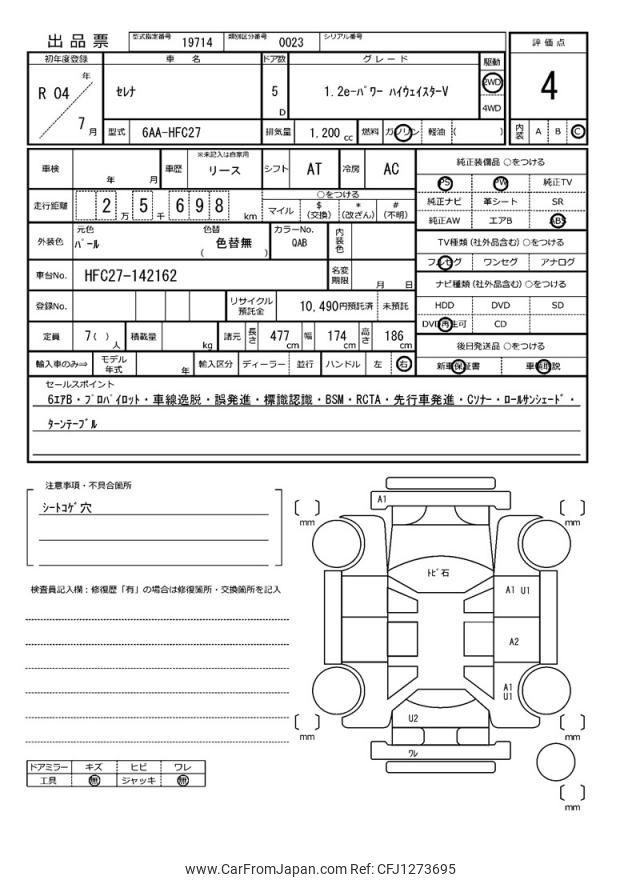 出品票 型式指定番号 19714 類別区分番号 0023 シリアル番号
評価点
4
内装 A B C
初年度登録 車名 ドア数 グレード 駆動
R 04 年 7 月 セレナ 5 D 1.2e-パワー ハイウェイスターV 2WD
4WD
型式 6AA-HFC27 排気量 1.200 cc 燃料 ガソリン 軽油 ( )
車検 年 月 車歴 ※未記入は自家用 リース シフト AT 冷房 AC
走行距離 2 万 5 千 6 9 8 km
○をつける
マイル $(交換) *(改ざん) #(不明)
外装色 元色 パール 色替 ( 色替無 ) カラーNo. QAB 内装色
車台No. HFC27-142162 名変期限 月 日
登録No. リサイクル預託金 10,490円預託済 未預託
定員 7( )人 積載量 kg 諸元 長さ 477 cm 幅 174 cm 高さ 186 cm
輸入車のみ⇒ モデル年式 年 輸入区分 ディーラー 並行 ハンドル 左 右
純正装備品 ○をつける
PS PW 純正TV
純正ナビ 革シート SR
純正AW エアB ABS
TV種類 (社外品含む) ○をつける
フルセグ ワンセグ アナログ
ナビ種類 (社外品含む) ○をつける
HDD DVD SD
DVD再生可 CD
後日発送品 ○をつける
新車保証書 車輌取説
セールスポイント
6エアB・プロパイロット・車線逸脱・誤発進・標識認識・BSM・RCTA・先行車発進・Cソナー・ロールサンシェード・
ターンテーブル
注意事項・不具合箇所
シートコゲ穴
検査員記入欄：修復歴「有」の場合は修復箇所・交換箇所を記入
ドアミラー キズ ヒビ ワレ
工具 無 ジャッキ 無
A1
[ ] mm
[ ] mm
トビ石
A1 U1
A2
A1
U1
U2
ワレ
[ ] mm
[ ] mm
[ ] mm
www.CarFromJapan.com Ref: CFJ1273695